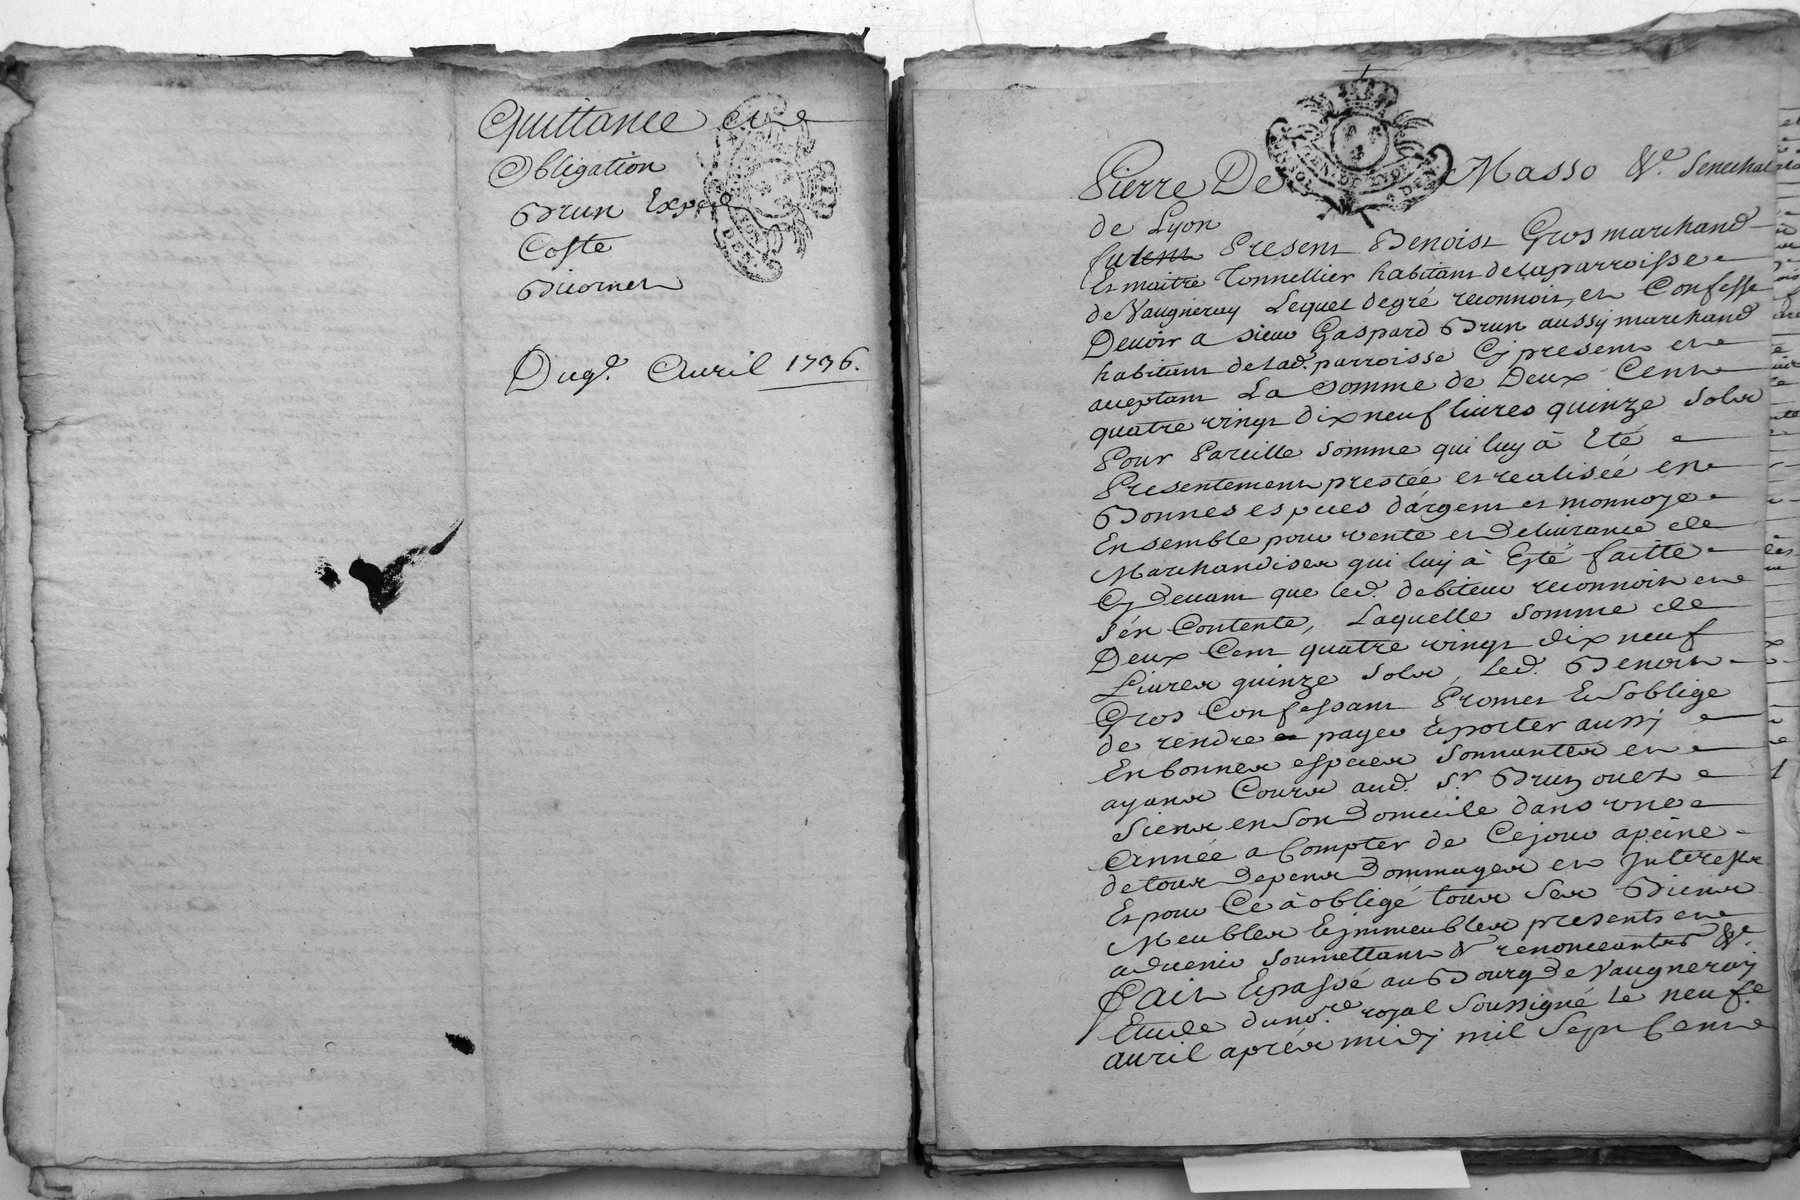 Quittance et
Obligation
Brun
Coste
Du Avril 1736.
Pierre De Masso &c. Senechal
de Lyon
furent Present Benoist Gros marchand
Et maitre Tonnellier habitant de la parroisse
de Vaugneray Lequel de gré reconnoit, et Confesse
Devoir a sieur Gaspard Brun aussy marchand
habitant de lad. parroisse Cy present et
aceptant La Somme de Deux Cent
quatre vingt dix neuf livres quinze sols
Pour Pareille somme qui luy à Eté
Presentement prestée et realisée en
Bonnes especes d'argent et monnoye
Ensemble pour vente et Delivrance de
Marchandises qui luy à Esté faitte
Cy Devant que led. debiteur reconnoit et
s'én Contente, Laquelle somme de
Deux Cent quatre vingt dix neuf
Livres quinze sols, Led. Benoist
Gros Confessant Promet Et s'oblige
de rendre payer Et porter aussi
En bonnes especes sonnantes et
ayant Cours aud. Sr. Brun ou es
Siens en son Domicile dans une
Année a Compter de Cejour apeine
de tous depens Dommages et Interests
Et pour Cé à obligé tous Ses Biens
Meubles Et immeubles presents et
advenir soumettant & renonceant &c.
Fait Et passé au Bourg de Vaugneray
Etude du nore. royal soussigné le neufe.
avril aprés midy mil sept Cent